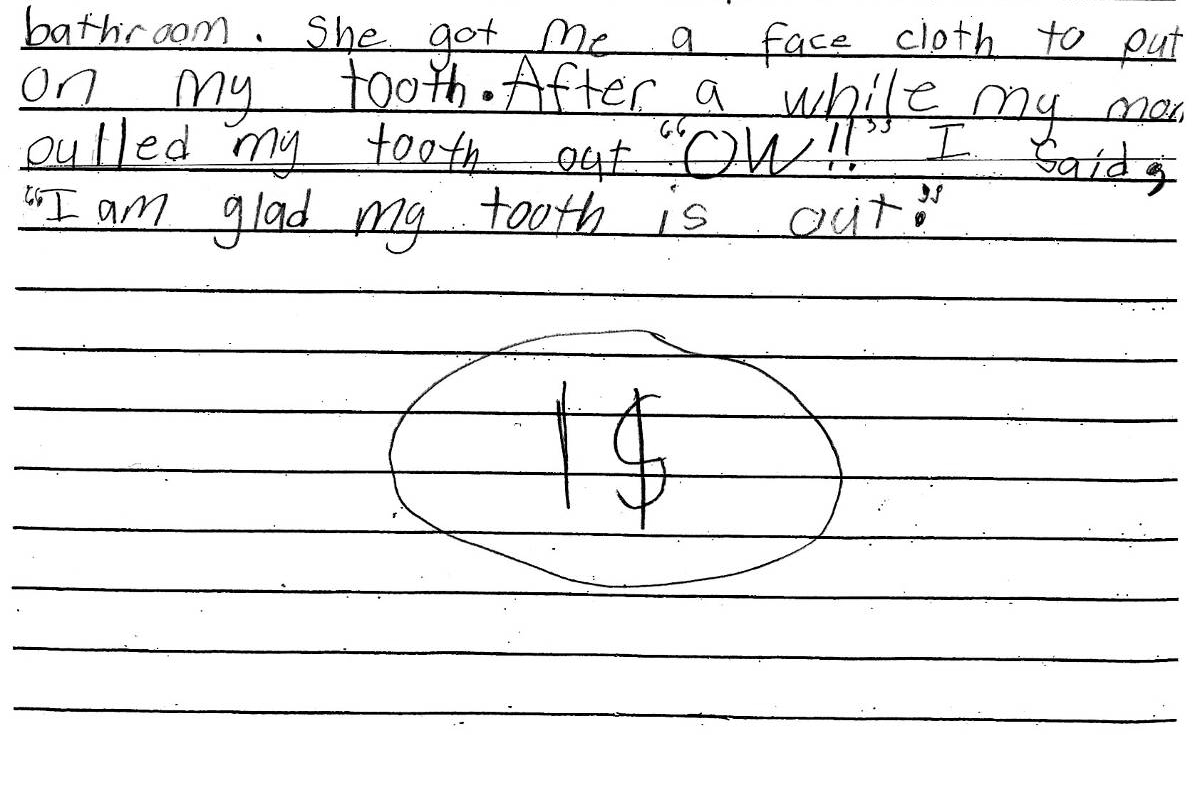 bathroom. She got me a face cloth to put
on my tooth. After a while my mom
pulled my tooth out "OW!!" I said,
"I am glad my tooth is out."
1$